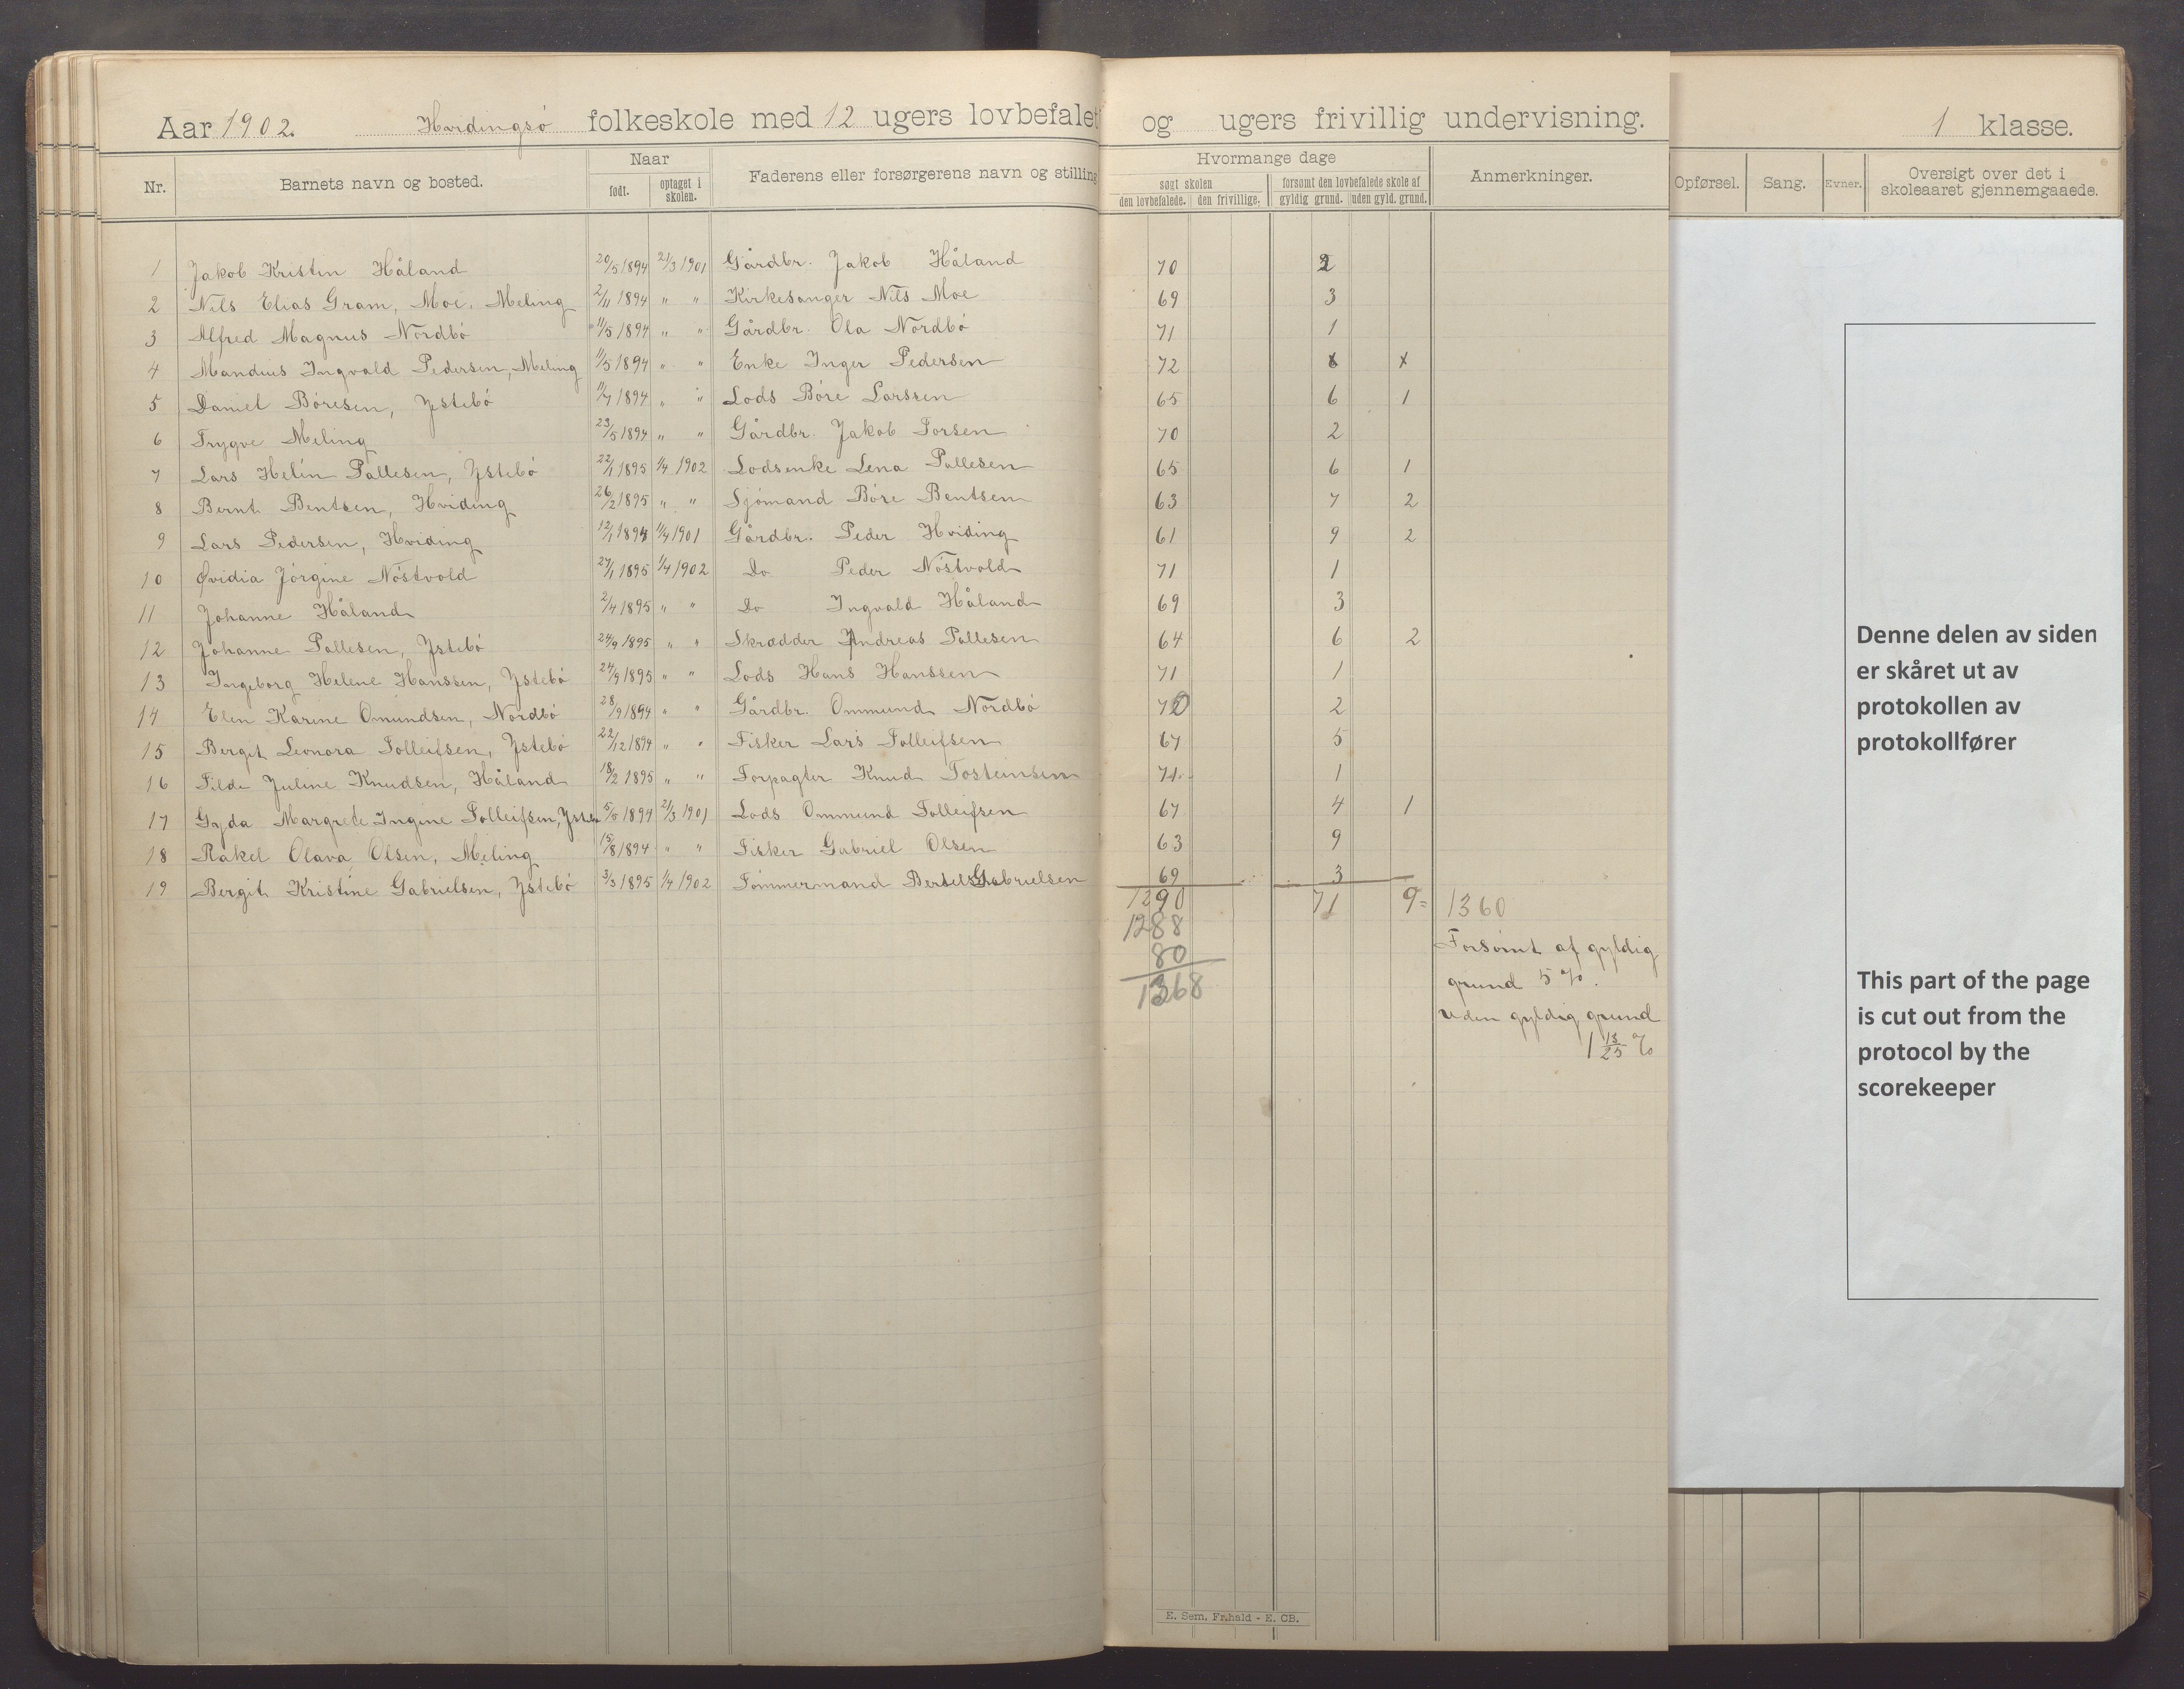 Aar 1902. Hvidingsö folkeskole med 12 ugers lovbefalet og ugers frivillig undervisning. 1 klasse.
Nr. Barnets navn og bosted. Naar født. optaget i skolen. Faderens eller forsørgerens navn og stilling Hvormange dage søgt skolen den lovbefalede. den frivillige. forsømt den lovbefalede skole af gyldig grund. uden gyld. grund. Anmerkninger. Opførsel. Sang. Evner. Oversigt over det i skoleaaret gjennemgaaede.
1 Jakob Kristin Håland 20/5 1894 21/3 1901 Gårdbr. Jakob Håland 70 2
2 Nils Elias Gram, Moe, Meling 2/11 1894 " " Kirkesanger Nils Moe 69 3
3 Alfred Magnus Nordbö 11/5 1894 " " Gårdbr. Ola Nordbö 71 1
4 Mandius Ingvald Pedersen, Meling 11/5 1894 " " Enke Inger Pedersen 72
5 Daniel Böresen, Ystebö 11/7 1894 " " Lods Böre Larssen 65 6 1
6 Trygve Meling 23/5 1894 " " Gårdbr. Jakob Torsen 70 2
7 Lars Helin Pallesen, Ystebö 22/1 1895 1/4 1902 Lodsenke Lena Pallesen 65 6 1
8 Bernt Bentsen, Hviding 26/2 1895 " " Sjömand Böre Bentsen 63 7 2
9 Lars Pedersen, Hviding 12/1 1894 11/4 1901 Gårdbr. Peder Hviding 61 9 2
10 Øvidia Jörgine Nöstvold 27/1 1895 1/4 1902 Do Peder Nöstvold 71 1
11 Johanne Håland 2/4 1895 " " Do Ingvald Håland 69 3
12 Johanne Pallesen, Ystebö 24/9 1895 " " Skrædder Andreas Pallesen 64 6 2
13 Ingeborg Helene Hanssen, Ystebö 24/9 1895 " " Lods Hans Hanssen 71 1
14 Elen Karine Omundsen, Nordbö 28/9 1894 " " Gårdbr. Ommund Nordbö 70 2
15 Bergit Leonora Tolleifsen, Ystebö 22/12 1894 " " Fisker Lars Tolleifsen 67 5
16 Tilda Juline Knudsen, Håland 18/2 1895 " " Forpagter Knud Tosteinsen 71 1
17 Gyda Margrete Ingine Tolleifsen, Ysteb 5/5 1894 21/3 1901 Lods Ommund Tolleifsen 67 4 1
18 Rakel Olava Olsen, Meling 15/8 1894 " " Fisker Gabriel Olsen 63 9
19 Bergit Kristine Gabrielsen, Ystebö 3/3 1895 1/4 1902 Tömmermand Bertel Gabrielsen 69 3
1290 71 9 = 1360
1288
80
1368
Forsömt af gyldig
grund 5 %.
Uden gyldig grund
1 13/25 %
E. Sem, Fr.hald - E. CB.
Denne delen av siden
er skåret ut av
protokollen av
protokollfører
This part of the page
is cut out from the
protocol by the
scorekeeper